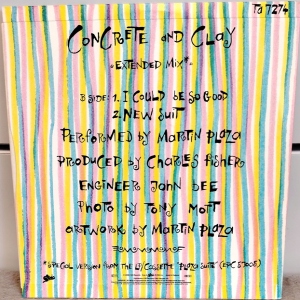 TS 7274
CONCRETE AND CLAY
*EXTENDED MIX*
B SIDE: 1. I COULD BE SO GOOD
2. NEW SUIT
PERFORMED BY MARTIN PLAZA
PRODUCED BY CHARLES FISHER
ENGINEER JOHN DEE
PHOTO BY TONY MOTT
ARTWORK BY MARTIN PLAZA
*SPECIAL VERSION FROM THE LP/CASSETTE "PLAZA SUITE" (EPC 57008)